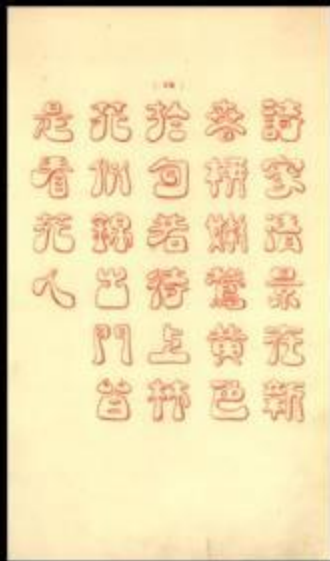 詩家清景在新
春柳嫩鶯黃色
勻若待上林
花似錦出門皆
是看花人